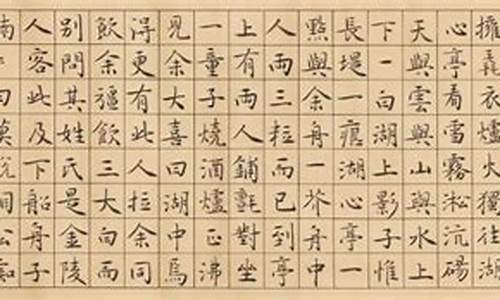 擁毳衣爐火獨往湖
心亭看雪霧淞沆碭
天與雲與山與水上
下一白湖上影子惟
長堤一痕湖心亭一
點與余舟一芥舟中
人两三粒而已到亭
上有两人鋪氈對坐
一童子燒酒爐正沸
見余大喜曰湖中焉
得更有此人拉余同
飲余彊飲三大白而
別問其姓氏是金陵
人客此及下船舟子
曰莫說相公癡